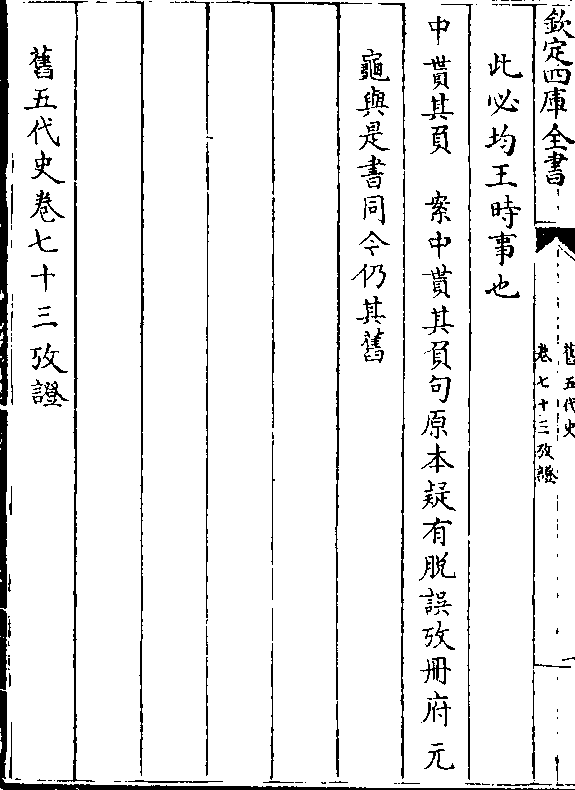 欽定四庫全書
舊五代史
卷七十三攷證
此必均王時事也
中貰其負　案中貰其負句原本疑有脱誤攷冊府元
龜與是書同今仍其舊
舊五代史卷七十三攷證